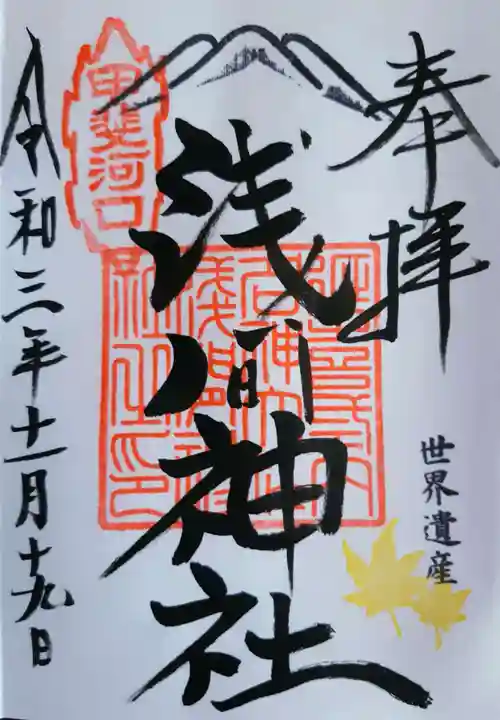 奉拝
世界遺産
甲斐河口
浅間神社
令和三年十一月十九日